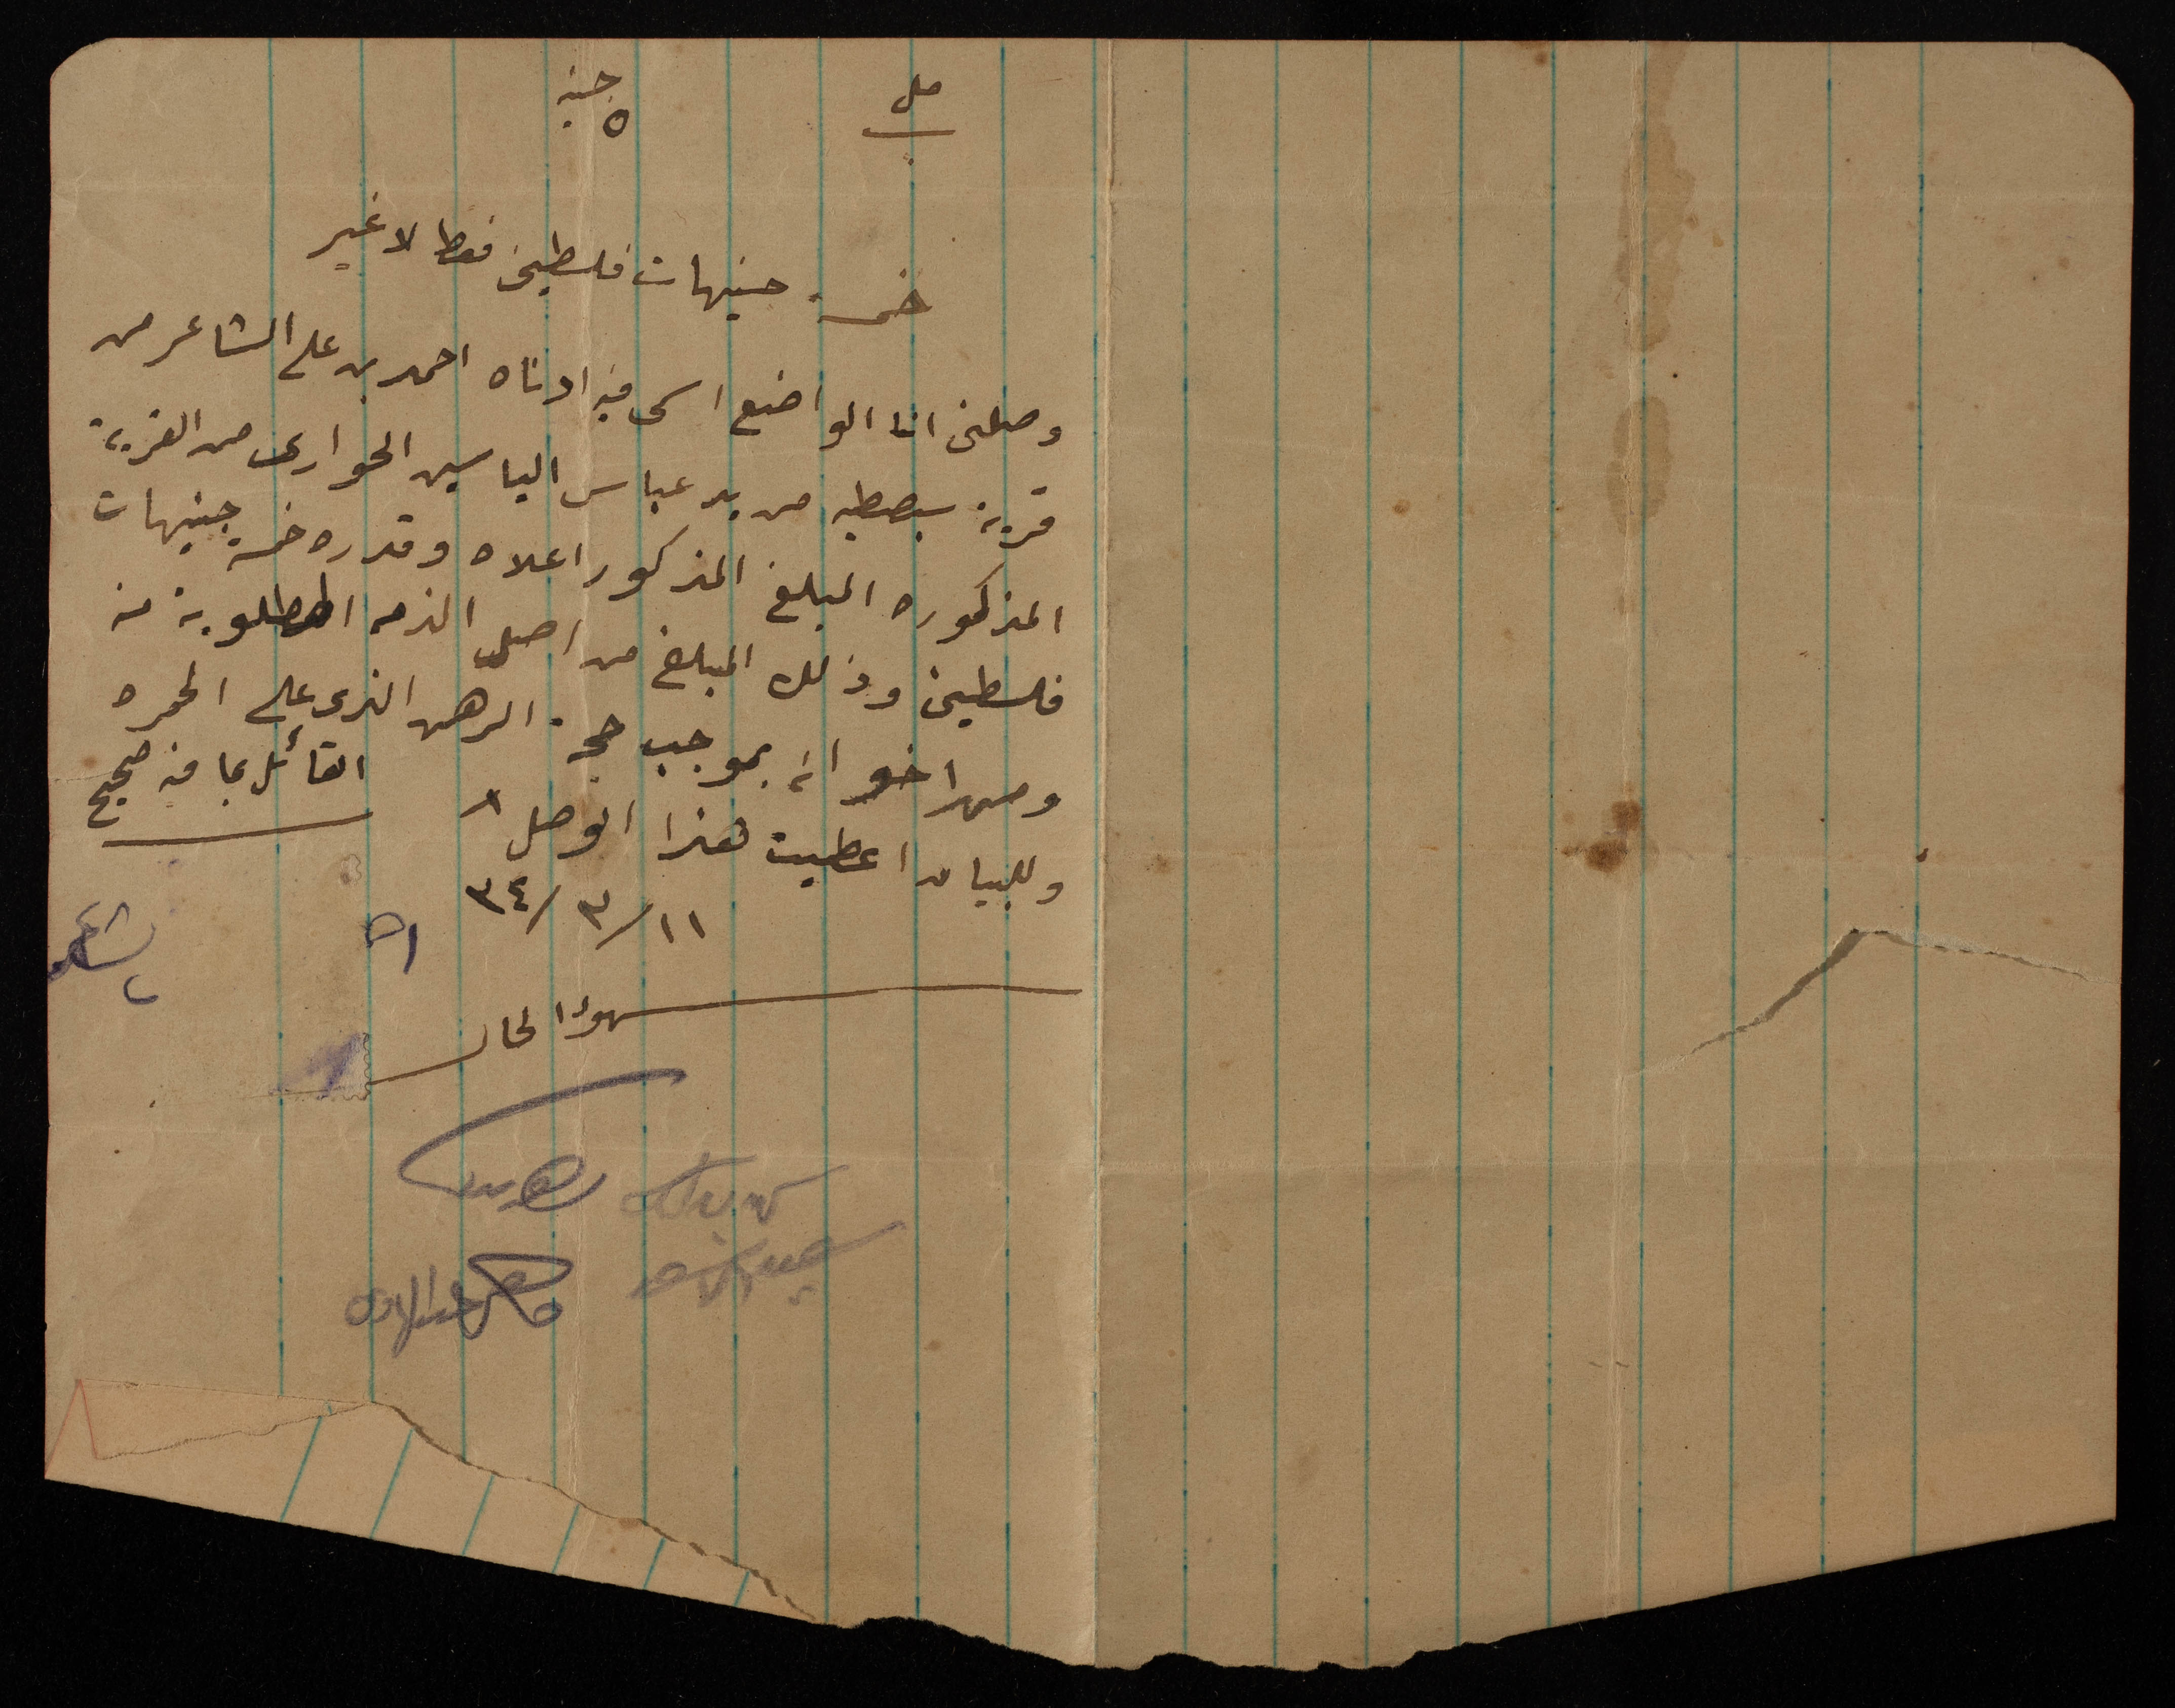 مل جنيه
٠ ٥
خمسة جنيهات فلسطيني فقط لا غير
وصلني انا الواضع اسمي فيه ادناه احمد بن علي الشاعر من
قرية سبصطيه من يد عباس الياسين الحواري من القرية
المذكوره المبلغ المذكور اعلاه وقدره خمسة جنيهات
فلسطيني وذلك المبلغ من اصل الذمه المطلوبة منه
ومن اخوانه بموجب حجة الرهن الذي على الحمره
وللبيان اعطيت هذا الوصل
القائل بما فيه صحيح
١١/٣/٣٤
شهود الحال